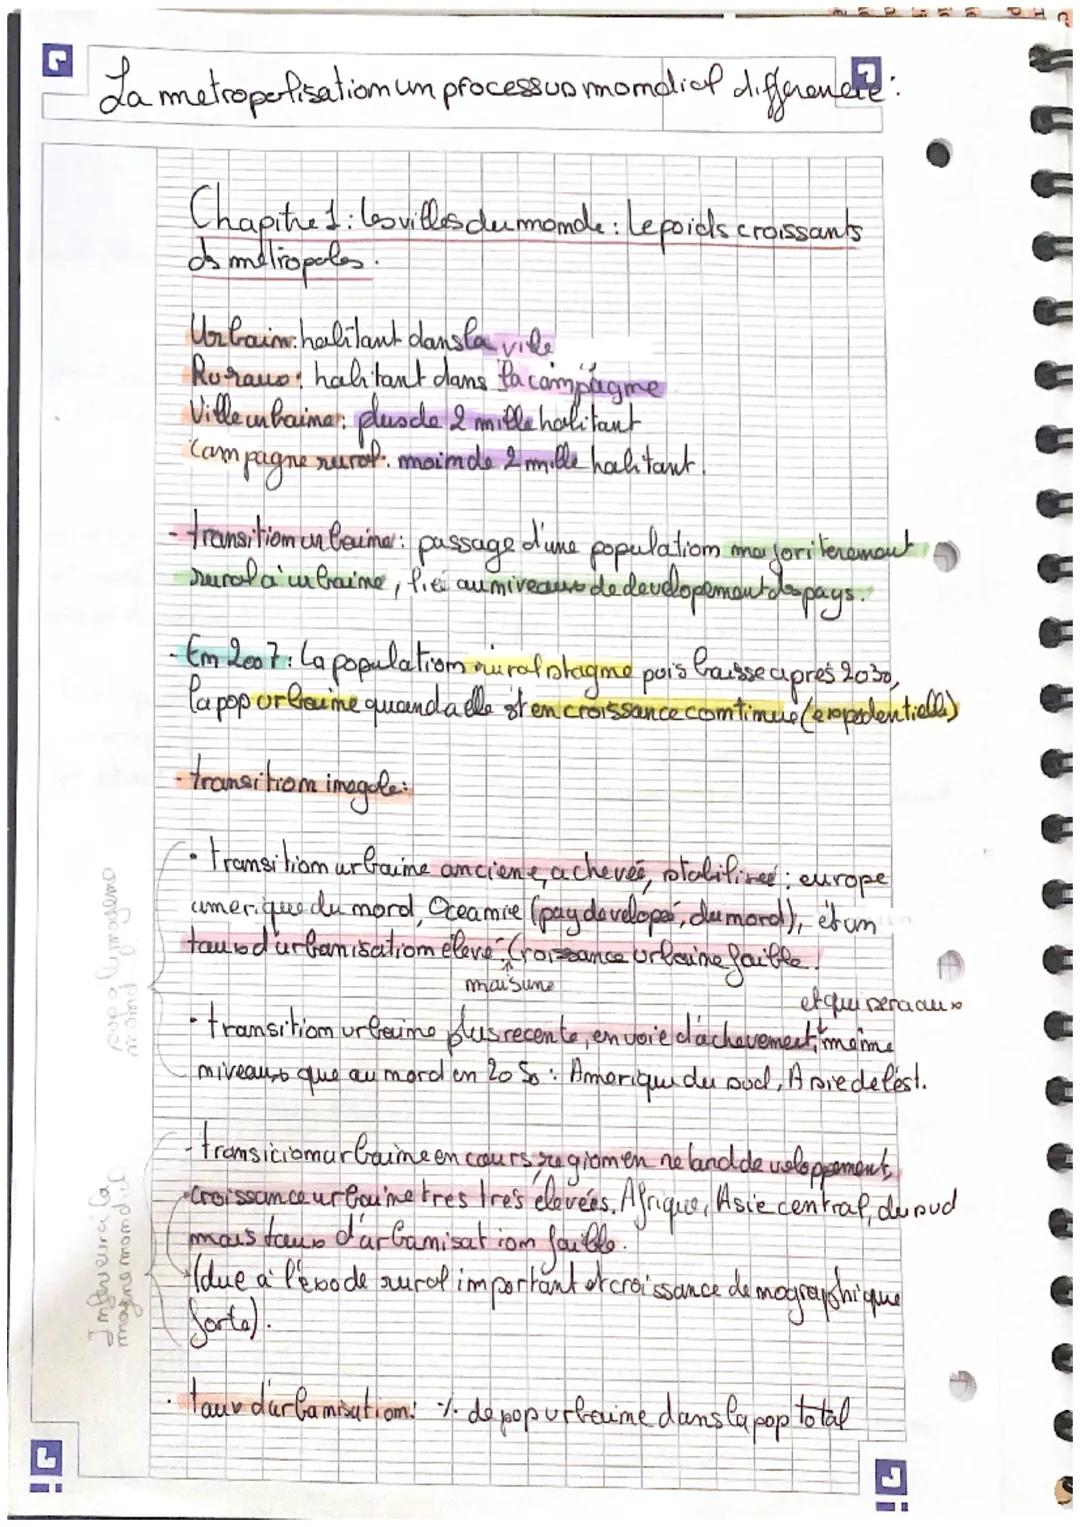 La metropolisation un processus mondial differencié :
Chapitre 1 : les villes du monde : Le poids croissants
ds métropoles.
Urbain: habitant dans la ville
Ruraux: habitant dans la campagne
Ville urbaine: plus de 2 mille habitant
Campagne rural: moin de 2 mille habitant.
- transition urbaine: passage d'une population majoriterement
rural à urbaine, lié au niveaux de developement des pays.
- En 2007: La population rural stagne puis baisse apres 2030,
la pop urbaine quand a elle st en croissance continue (expodentielle)
- transition inegale:
• transition urbaine anciene, achevée, stabilisée : europe
amerique du nord, Oceanie (pay developpé, du nord), ét un
taux d'urbanisation élevé, Croissance urbaine faible.
mais une
et qui sera aux
• transition urbaine plus recente, en voie d'achevement, même
niveaux que au nord en 2050 : Amerique du sud, Asie de l'est.
sup a la moyenne
mond
- transicion urbaine en cours, region en retard de veloppement,
croissance urbaine tres tres élevées. Afrique, Asie central, du sud
mais taux d'urbanisation faible.
(due a l'exode rural important et croissance demographique
forte).
Inferieur a la
moyenne mondial
• taux d'urbanisation: % de pop urbaine dans la pop total